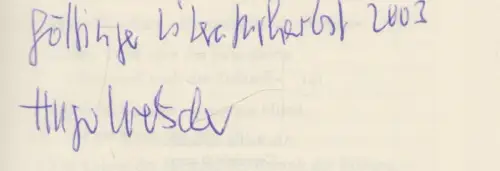 Göttinger Literaturherbst 2003
Hugo